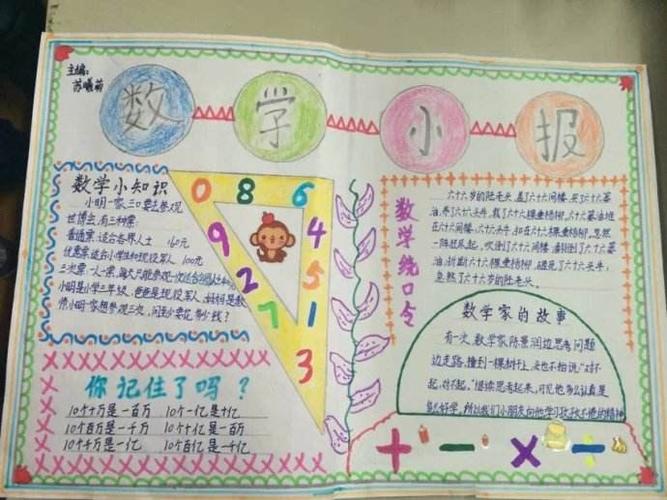 主编:
苏曦菊
数学小报
数学小知识
小明一家三口要去参观
世博会,有三种票:
普通票:适合各界人士 160元
优惠票:适合小学生和现役军人 100元
小明是小学三年级,爸爸是现役军人,妈妈是教
师,小明一家想参观三次,问至少要花多少钱?
0 8 6
9 4
2 5
7 1
3
你记住了吗?
10个十万是一百万 10个一亿是十亿
10个百万是一千万 10个十亿是一百亿
10个千万是一亿 10个百亿是一千亿
数学绕口令
六十六岁的陆老头,盖了六十六间楼,买了六十六篓
油,养了六十六头牛,栽了六十六棵垂杨柳。六十六篓油堆
在六十六间楼,六十六头牛,扣在六十六棵垂杨柳。忽然
一阵狂风起,吹倒了六十六间楼,翻倒了六十六篓
油,折断六十六棵垂杨柳,砸死了六十六头牛,
急煞了六十六岁的陆老头。
数学家的故事
有一次,数学家陈景润边思考问题
边走路,撞到一棵树干上,头也不抬说:"对不
起,对不起。"继续思考起来,可见他多么认真是
多么好学,所以我们小朋友向他学习孜孜不倦的精神
+ − × ÷